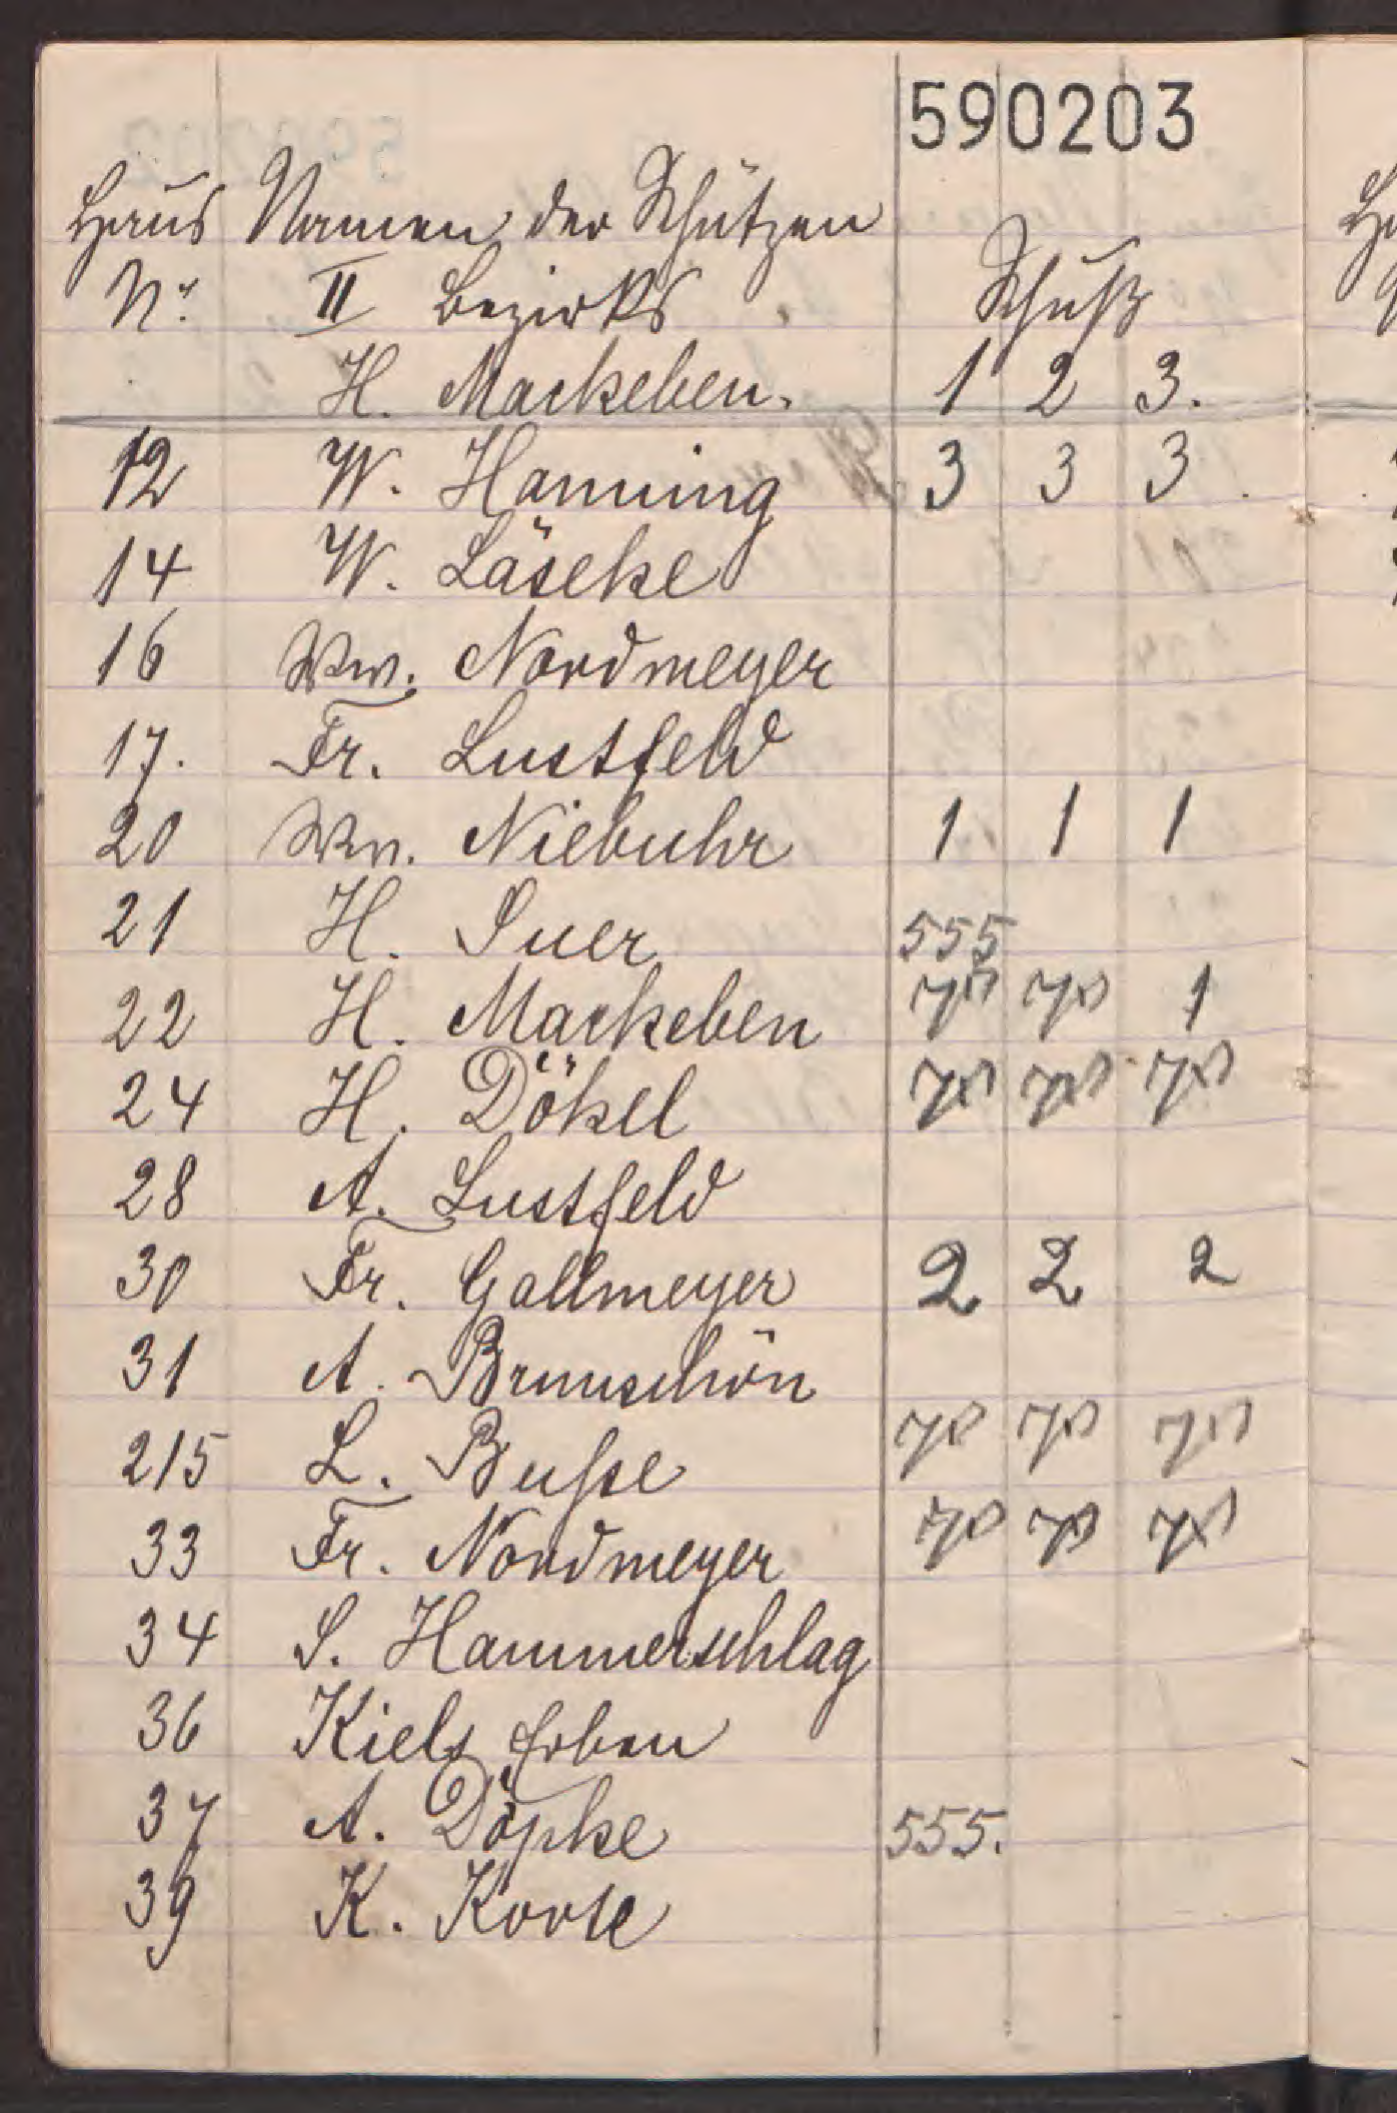 590203
Haus Namen der Schützen
Nr. II Bezirks Schuß
H. Mackeben. 1 2 3.
12 W. Hanning 3 3 3
14 W. Läseke
16 Ww. Nordmeyer
17. Fr. Lustfeld
20 Ww. Niebuhr 1 1 1
21 H. Suer 555
22 H. Mackeben 1
24 H. Dökel
28 A. Lustfeld
30 Fr. Gallmeyer 2 2 2
31 A. Brunschön
215 L. Buſse
33 Fr. Nordmeyer
34 S. Hammerschlag
36 Kiels Erben
37 A. Döpke 555.
39 K. Korte